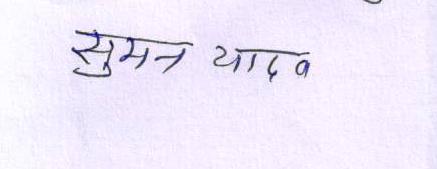 सुमन यादव